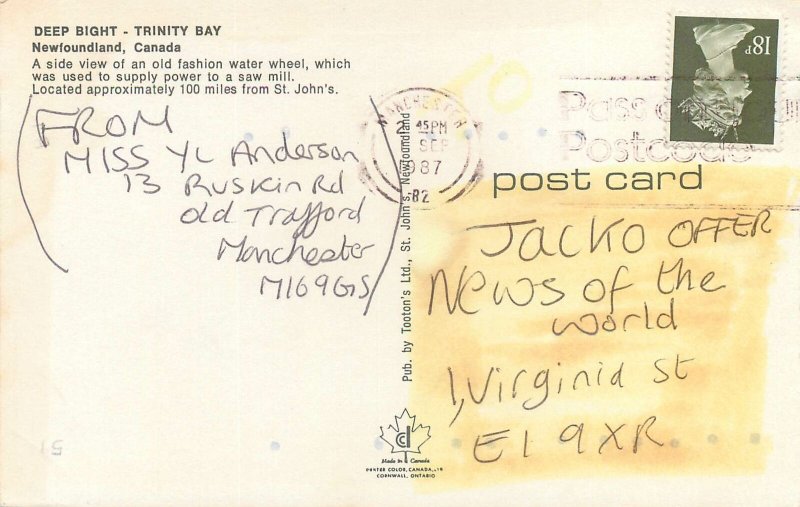 DEEP BIGHT - TRINITY BAY
Newfoundland, Canada
A side view of an old fashion water wheel, which
was used to supply power to a saw mill.
Located approximately 100 miles from St. John's.
FROM
MISS YL Anderson
13 Ruskin Rd
Old Trafford
Manchester
M169GS
Pub. by Tooton's Ltd., St. John's, Newfoundland
MANCHESTER
45PM
SEP
1987
18P
post card
Jacko OFFER
News of the
world
1, Virginia st
E1 9XR
Made in Canada
CORNWALL, ONTARIO
15